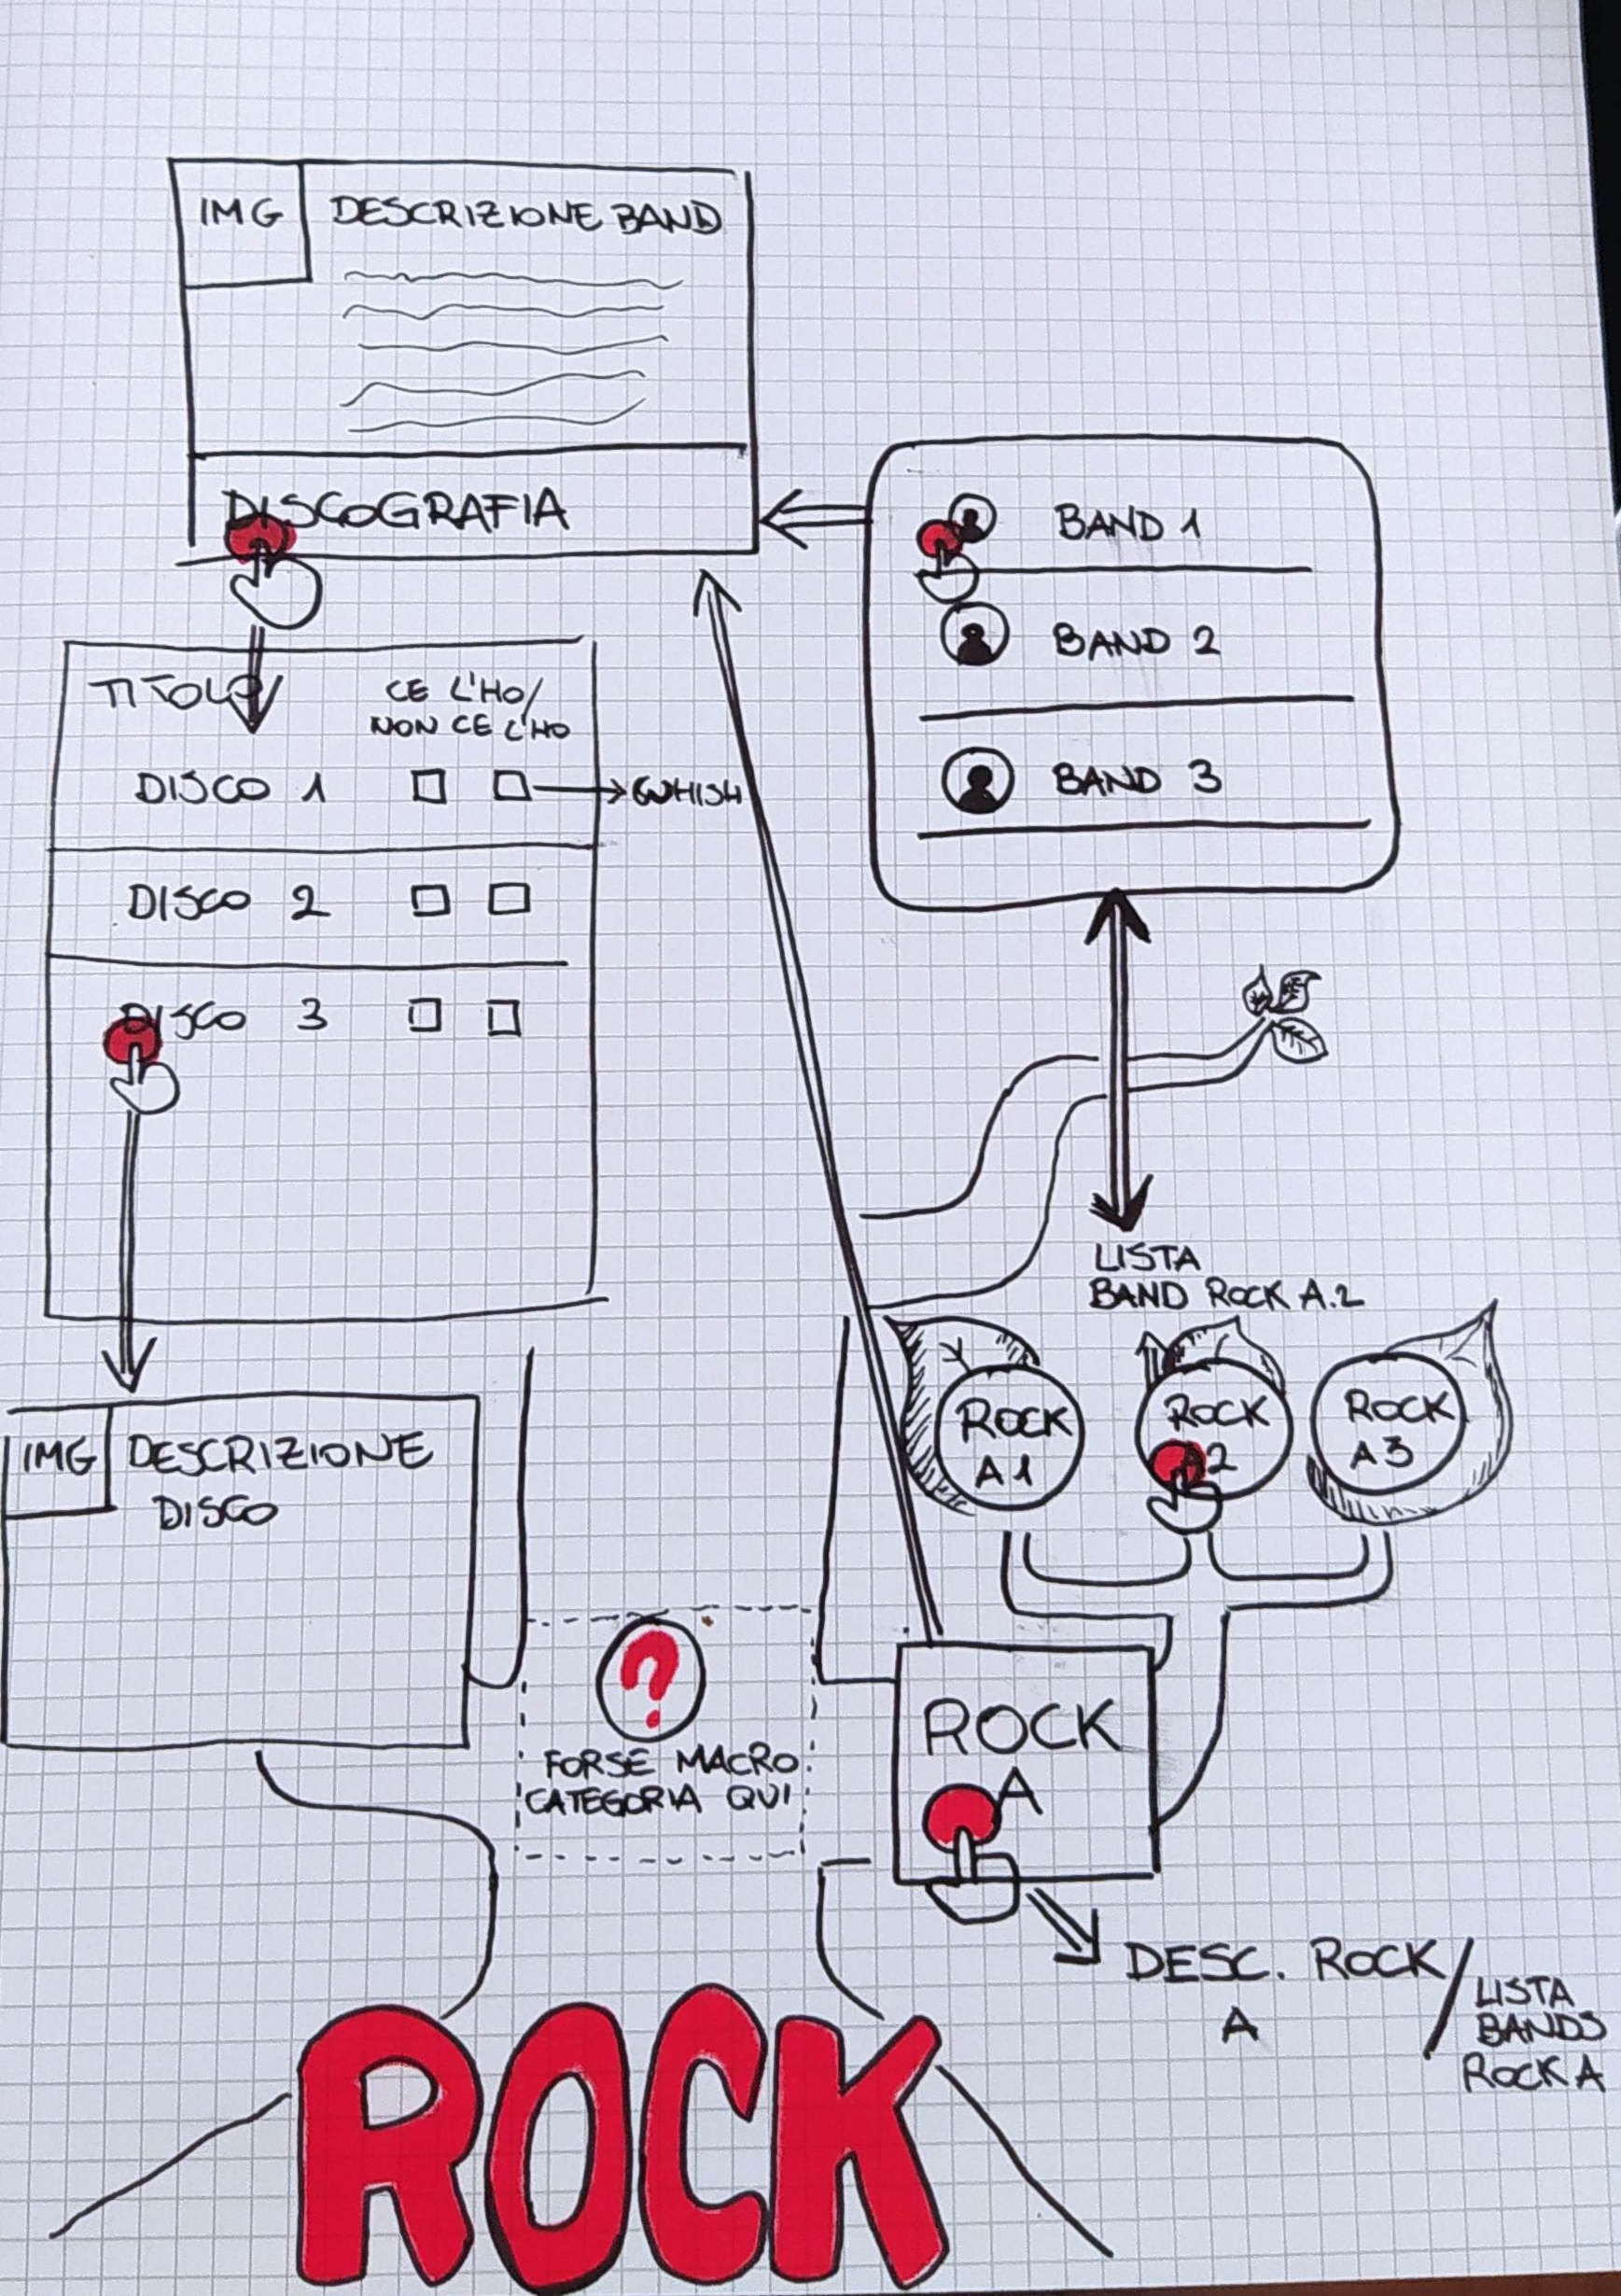 IMG
DESCRIZIONE BAND
DISCOGRAFIA
BAND 1
BAND 2
BAND 3
TITOLO
CE L'HO/
NON CE L'HO
DISCO 1
WHISH
DISCO 2
DISCO 3
LISTA
BAND ROCK A.2
ROCK
A1
ROCK
A2
ROCK
A3
IMG
DESCRIZIONE
DISCO
?
FORSE MACRO
CATEGORIA QUI
ROCK
A
DESC. ROCK/
A
LISTA
BANDS
ROCK A
ROCK